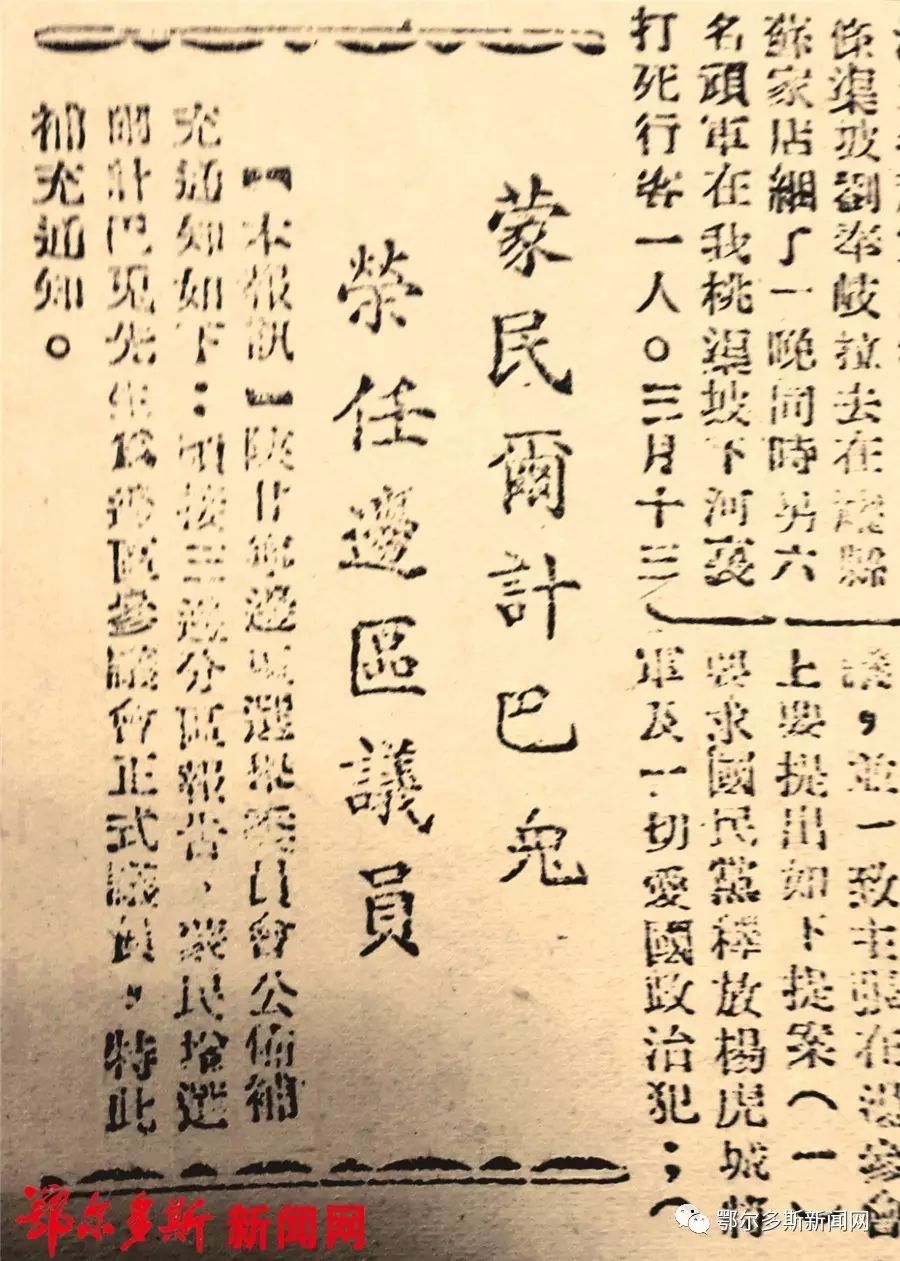 條渠坡劉奉岐拉去在
蘇家店綑了一晚同時另六
名頑軍在我桃渠坡下河裏
打死行客一人。三月十三
，並一致主張在混參會
上要提出如下提案（一）
要求國民黨釋放楊虎城將
軍及一切愛國政治犯；（
蒙民爾計巴兔
榮任邊區議員
【本報訊】陝甘寧邊區選舉委員會公佈補
充通知如下：頃接三邊分區報告、蒙民增選
爾計巴兔先生為邊區參議會正式議員，特此
補充通知。
鄂尔多斯新闻网
鄂尔多斯新闻网